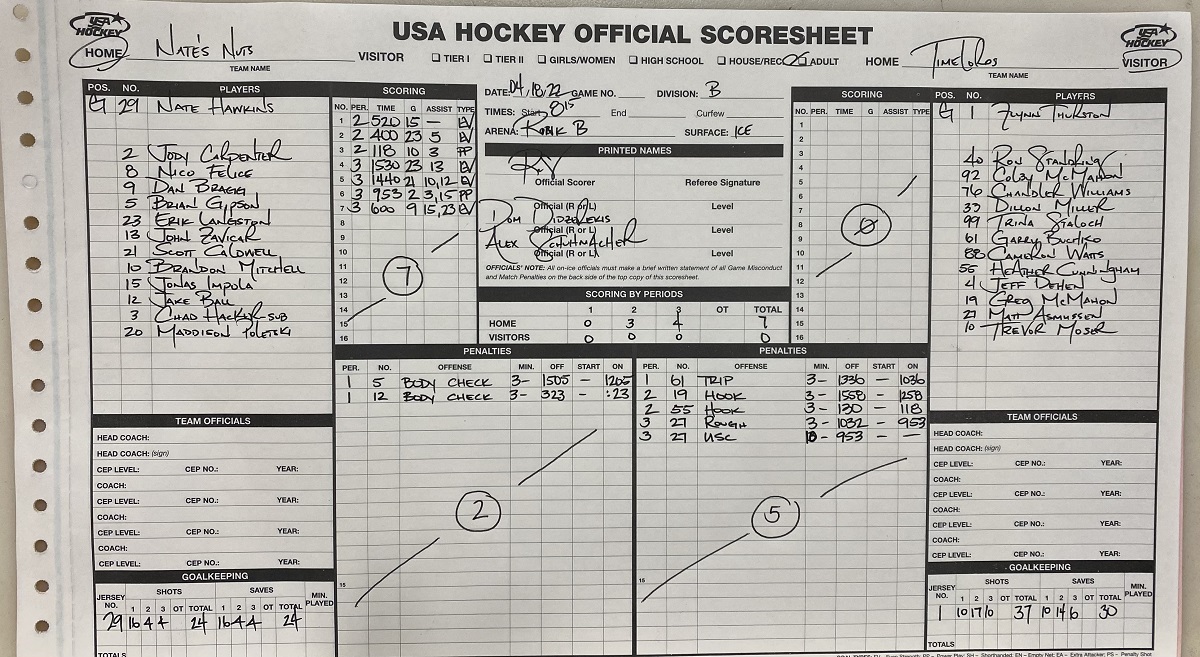 USA HOCKEY OFFICIAL SCORESHEET
USA HOCKEY
HOME NATE'S NUTS VISITOR
TEAM NAME
TIER I TIER II GIRLS/WOMEN HIGH SCHOOL HOUSE/REC ADULT
HOME TIMELORDS VISITOR
TEAM NAME
USA HOCKEY
POS. NO. PLAYERS
G 29 NATE HAWKINS
2 JODY CARPENTER
8 NICO FELICE
9 DAN BRAGG
5 BRIAN GIPSON
23 ERIK LANGSTON
13 JOHN ZAVICAR
21 SCOTT CALDWELL
10 BRANDON MITCHELL
15 JONAS IMPOLA
12 JAKE BALL
3 CHAD HACKER SUB
20 MADDISON POLETSKI
SCORING
NO. PER. TIME G ASSIST TYPE
1 2 520 15 — EV
2 2 400 23 5 EV
3 2 118 10 3 PP
4 3 1530 23 13 EV
5 3 1440 21 10,12 EV
6 3 953 2 3,15 PP
7 3 600 9 15,23 EV
8
9
10
11
12
13
14
15
16
7
DATE: 04,18,22 GAME NO. DIVISION: B
TIMES: Start 815 End Curfew
ARENA: B SURFACE: ICE
PRINTED NAMES
Official Scorer Referee Signature
Official (R or L) Level
DOM DIDZEREKIS
Official (R or L) Level
ALEX SCHUHMACHER
Official (R or L) Level
OFFICIALS' NOTE: All on-ice officials must make a brief written statement of all Game Misconduct
and Match Penalties on the back side of the top copy of this scoresheet.
SCORING BY PERIODS
1 2 3 OT TOTAL
HOME 0 3 4 7
VISITORS 0 0 0 0
SCORING
NO. PER. TIME G ASSIST TYPE
1
2
3
4
5
6
7
8
9
10
11
12
13
14
15
16
0
POS. NO. PLAYERS
G 1 FLYNN THURSTON
40 RON STANDRING
92 COLBY MCMAHON
76 CHANDLER WILLIAMS
33 DILLON MILLER
99 TRINA STALOCH
61 GARRY BUCHKO
88 CAMERON WATTS
55 HEATHER CUNNINGHAM
4 JEFF DEHEN
19 GREG MCMAHON
27 MATT ASMUSSEN
10 TREVOR MOSER
PENALTIES
PER. NO. OFFENSE MIN. OFF START ON
1 5 BODY CHECK 3- 1505 — 1205
1 12 BODY CHECK 3- 323 — :23
2
15
PENALTIES
PER. NO. OFFENSE MIN. OFF START ON
1 61 TRIP 3- 1336 — 1036
2 19 HOOK 3- 1558 — 1258
2 55 HOOK 3- 130 — 118
3 27 ROUGH 3- 1032 — 953
3 27 USC 10- 953 — —
5
15
TEAM OFFICIALS
HEAD COACH:
HEAD COACH: (sign)
CEP LEVEL: CEP NO.: YEAR:
COACH:
CEP LEVEL: CEP NO.: YEAR:
COACH:
CEP LEVEL: CEP NO.: YEAR:
COACH:
CEP LEVEL: CEP NO.: YEAR:
GOALKEEPING
JERSEY NO. SHOTS SAVES MIN. PLAYED
1 2 3 OT TOTAL 1 2 3 OT TOTAL
29 16 4 4 24 16 4 4 24
TOTALS
TEAM OFFICIALS
HEAD COACH:
HEAD COACH: (sign)
CEP LEVEL: CEP NO.: YEAR:
COACH:
CEP LEVEL: CEP NO.: YEAR:
COACH:
CEP LEVEL: CEP NO.: YEAR:
COACH:
CEP LEVEL: CEP NO.: YEAR:
GOALKEEPING
JERSEY NO. SHOTS SAVES MIN. PLAYED
1 2 3 OT TOTAL 1 2 3 OT TOTAL
1 10 17 10 37 10 14 6 30
TOTALS